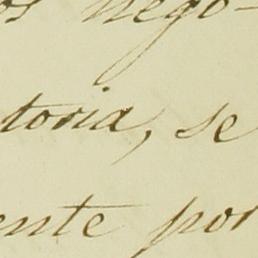 os nego-
toria, se
ente por